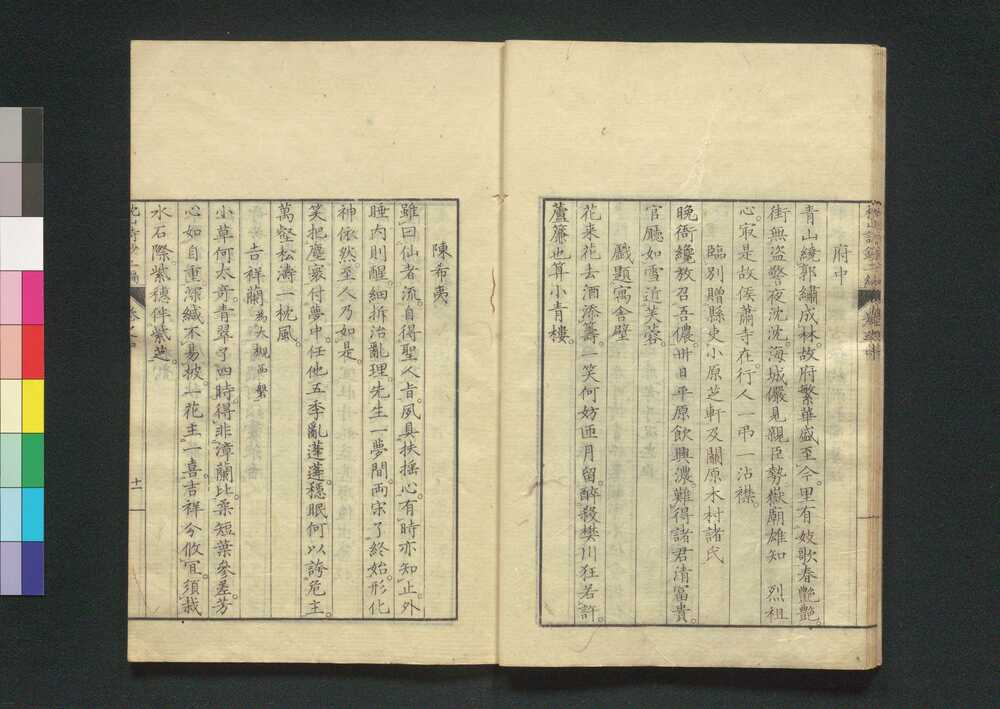 府中
青山繞郭繡成林。故府繁華盛至今。里有妓歌春艷艷。
街無盜警夜沈沈。海城儼見親臣勢。嶽廟雄知　烈祖
心。寂是故侯蕭寺在。行人一弔一沾襟。
臨別贈縣吏小原芝軒及關原木村諸氏
晚衙纔散召吾儂。卅日平原飲興濃。難得諸君清富貴。
官廳如雪近芙蓉。
戲題寓舍壁
花来花去酒添籌。一笑何妨匝月留。醉殺樊川狂若許。
蘆簾也算小青樓。
陳希夷
雖曰仙者流。自得聖人旨。夙具扶搖心。有時亦知止。外
睡内則醒。細拆治亂理。先生一夢間。兩宋了終始。形化
神依然。至人乃如是。
笑把塵寰付夢中。任他五季亂蓬蓬。穩眠何以誇危主。
萬壑松濤一枕風。
吉祥蘭 為大槻西磐
小草何太奇。青翠了四時。得非漳蘭比。葉短葉參差。芳
心如自重。深緘不易披。一花主一喜。吉祥分攸宜。須栽
水石際。紫穗伴紫芝。
十一